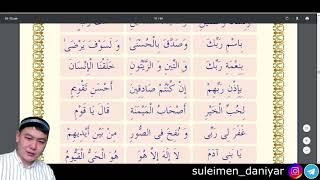 بِاسْمِ رَبِّكَ وَصَدَّقَ بِالْحُسْنَى وَ لَسَوْفَ يَرْضَى
بِنِعْمَةِ رَبِّكَ وَ التِّينِ وَ الزَّيْتُونِ خَلَقْنَا الْإِنْسَانَ
بِإِذْنِ رَبِّهِمْ إِنْ كُنْتُمْ صَادِقِينَ أَحْسَنِ تَقْوِيمٍ
لِحُبِّ الْخَيْرِ أَصْحَابُ الْمَيْمَنَةِ قَالَ يَا قَوْمِ
غَفَرَ لِي رَبِّي وَ نُفِخَ فِي الصُّورِ مِنْ بَيْنِ أَيْدِيهِمْ
يَا بَنِي آدَمَ لَا إِلَهَ إِلَّا هُوَ هُوَ الْحَيُّ الْقَيُّومُ
suleimen_daniyar